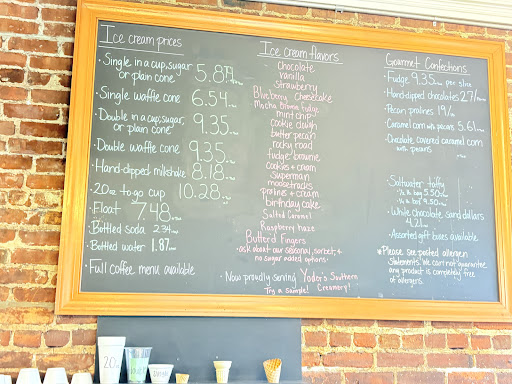 Ice cream prices
• Single in a cup, sugar
or plain cone 5.87
• Single waffle cone 6.54
• Double in a cup, sugar,
or plain cone 9.35
• Double waffle cone 9.35
• Hand-dipped milkshake 8.18
• 20oz to-go cup 10.28
• Float 7.48
• Bottled soda 2.34
• Bottled water 1.87
• Full coffee menu available
Ice cream flavors
chocolate
vanilla
strawberry
Blueberry Cheesecake
Mocha Fudge
mint chip
cookie dough
butter pecan
rocky road
fudge brownie
cookies + cream
Superman
moosetracks
pralines + cream
birthday cake
Salted Caramel
Raspberry haze
Butterd Fingers
• ask about our seasonal, sorbet, +
no sugar added options •
• Now proudly serving Yoder's Southern
Try a sample! Creamery!
Gourmet Confections
• Fudge 9.35 per slice
• Hand-dipped chocolates 27/
• Pecan pralines 19/
• Caramel corn with pecans 5.61
• Chocolate covered caramel corn
with pecans
• Saltwater taffy
- ½ lb bag 5.50
- 1 lb bag 9.50
• White chocolate sand dollars
4.21
• Assorted gift boxes available
* Please see posted allergen
statements. We can not guarantee
any product is completely free
of allergens.
20